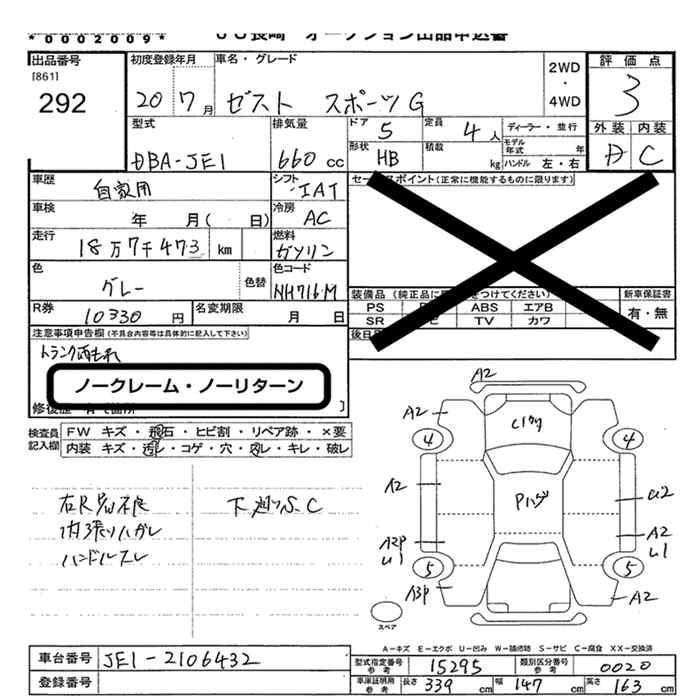 *0002009*
JU長崎 オークション出品申込書
出品番号
[861]
292
初度登録年月 20 7月
車名・グレード ゼスト スポーツG
2WD・4WD
評価点 3
外装 内装
A C
型式 DBA-JE1
排気量 660 cc
ドア 5
定員 4人
形状 HB
積載 kg
ディーラー・並行
モデル年式 年
ハンドル 左・右
車歴 自家用
シフト IAT
車検 年 月( 日)
冷房 AC
走行 18万7千473 km
燃料 ガソリン
色 グレー
色替
色コード NH716M
R券 10330円
名変期限 月 日
セールスポイント(正常に機能するものに限ります)
装備品(純正品に をつけてください)
PS ABS エアB
SR TV カワ
新車保証書
有・無
後日
注意事項申告欄(不具合内容等は具体的に記入して下さい)
トランク雨もれ
ノークレーム・ノーリターン
修復歴
検査員記入欄
FW キズ・飛石・ヒビ割・リペア跡・×要
内装 キズ・汚レ・コゲ・穴・スレ・キレ・破レ
内張りハガレ
ハンドルスレ
下廻りS.C
A2
A2
4
4
A2
U2
A2P
U1
A2
U1
5
5
A3P
A2
Pハゲ
スペア
A-キズ E-エクボ U-凹み W-補修跡 S-サビ C-腐食 XX-交換済
車台番号 JE1-2106432
登録番号
型式指定番号 参考 15295
類別区分番号 参考 0020
車庫証明用 参考 長さ 339 cm 幅 147 cm 高さ 163 cm